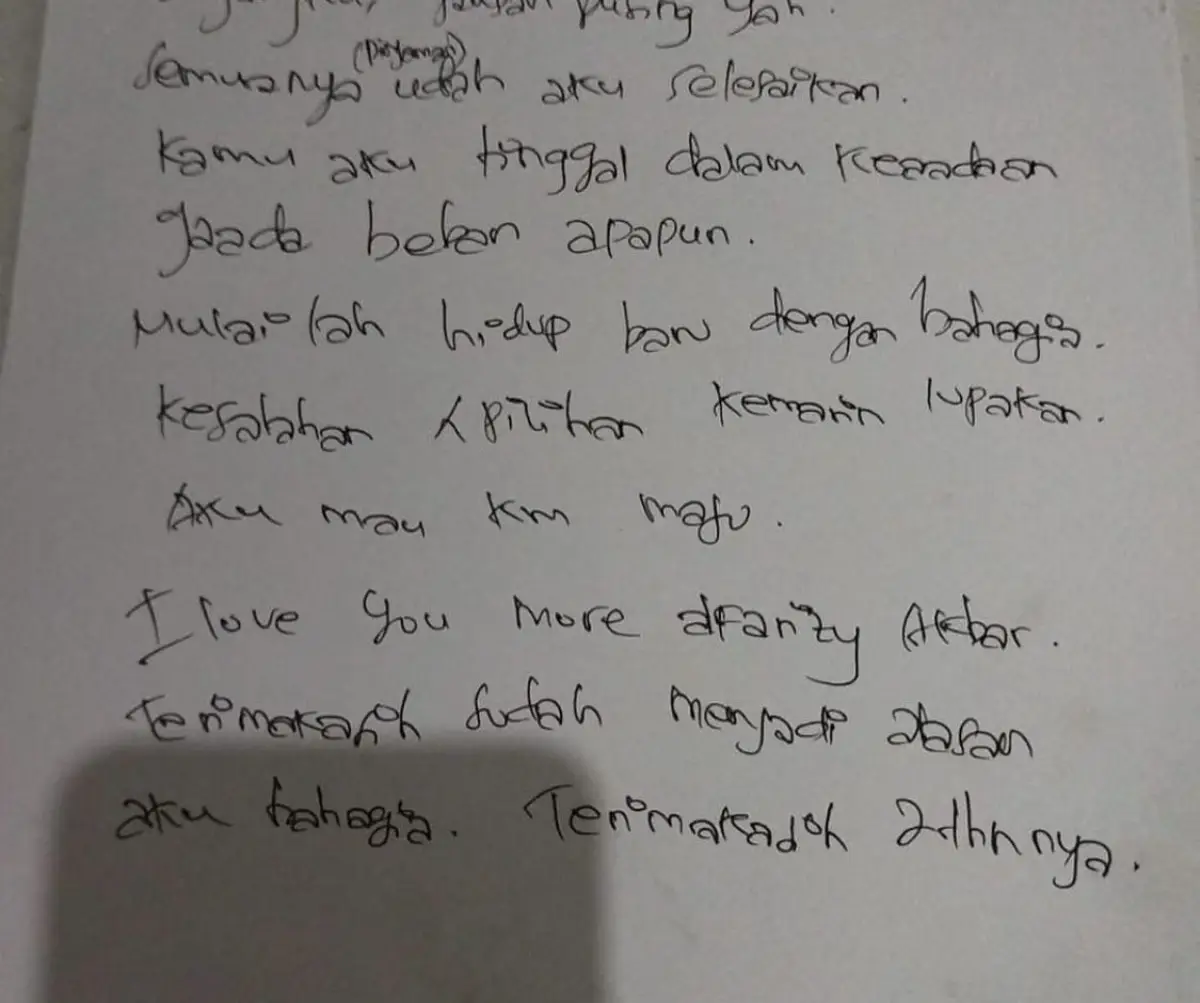 jangan pusing yah.
(Pinjaman)
Semuanya udah aku selesaikan.
Kamu aku tinggal dalam keaadaan
gaada beban apapun.
Mulailah hidup baru dengan bahagia.
kesalahan & pilihan kemarin lupakan.
Aku mau km maju.
I love you more afanzy Akbar.
Terimakasih sudah menjadi alasan
aku bahagia. Terimakasih 2thnnya.